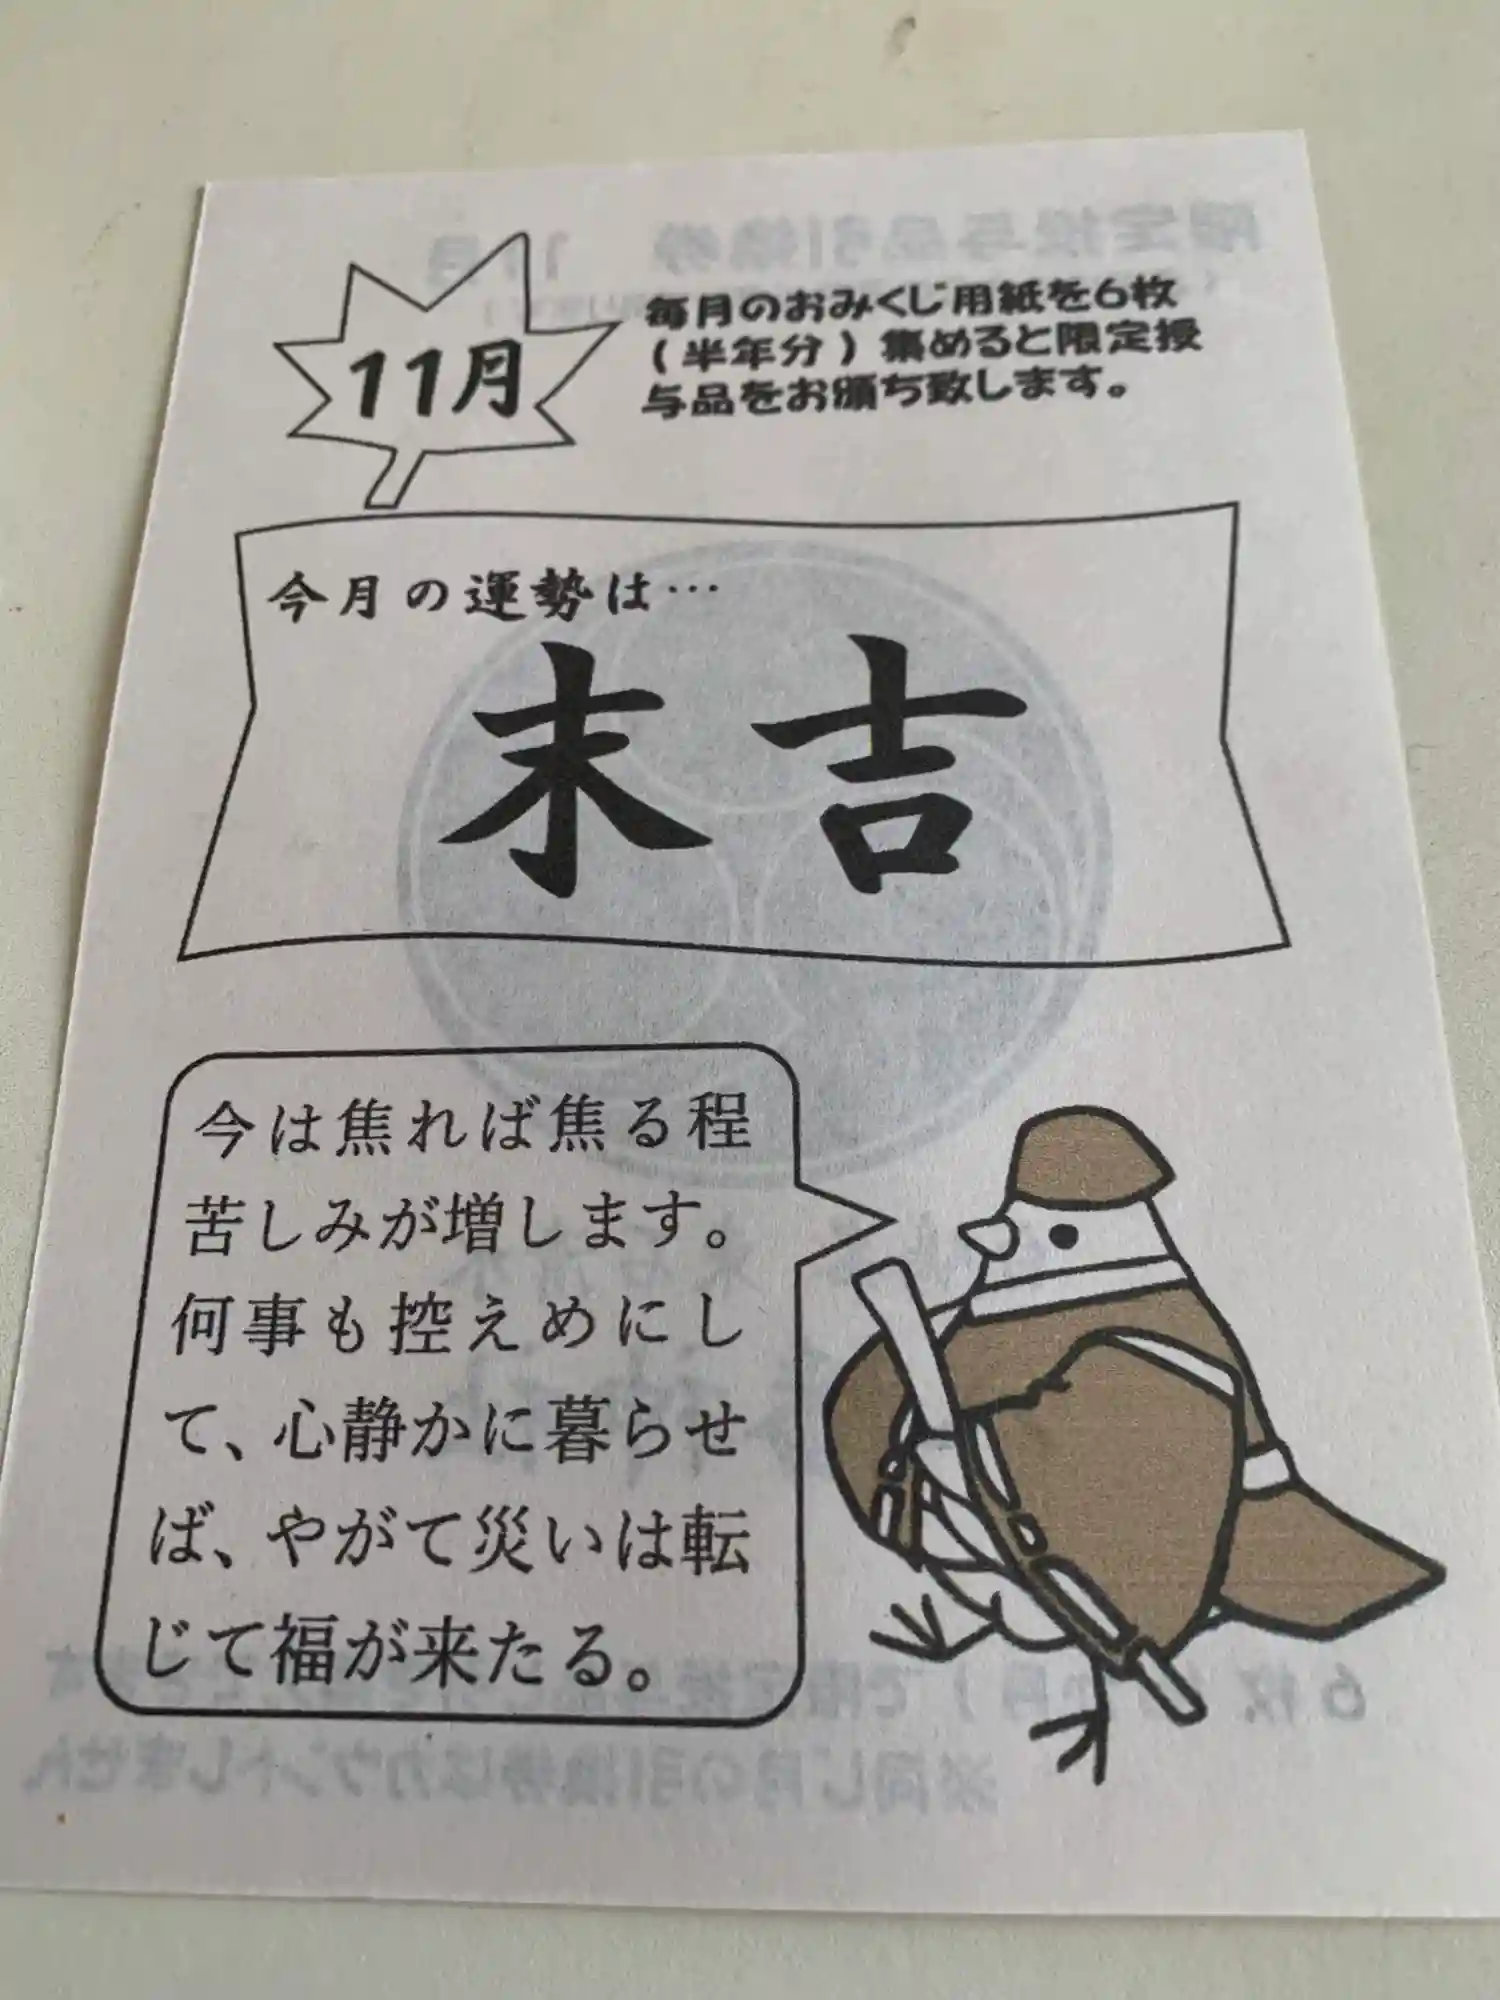 11月
毎月のおみくじ用紙を6枚
(半年分)集めると限定授
与品をお頒ち致します。
今月の運勢は…
末吉
今は焦れば焦る程
苦しみが増します。
何事も控えめにし
て、心静かに暮らせ
ば、やがて災いは転
じて福が来たる。
※同じ月の引換券はカウントしません